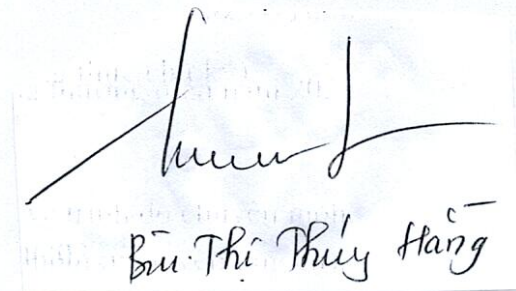 Bùi Thị Thúy Hằng